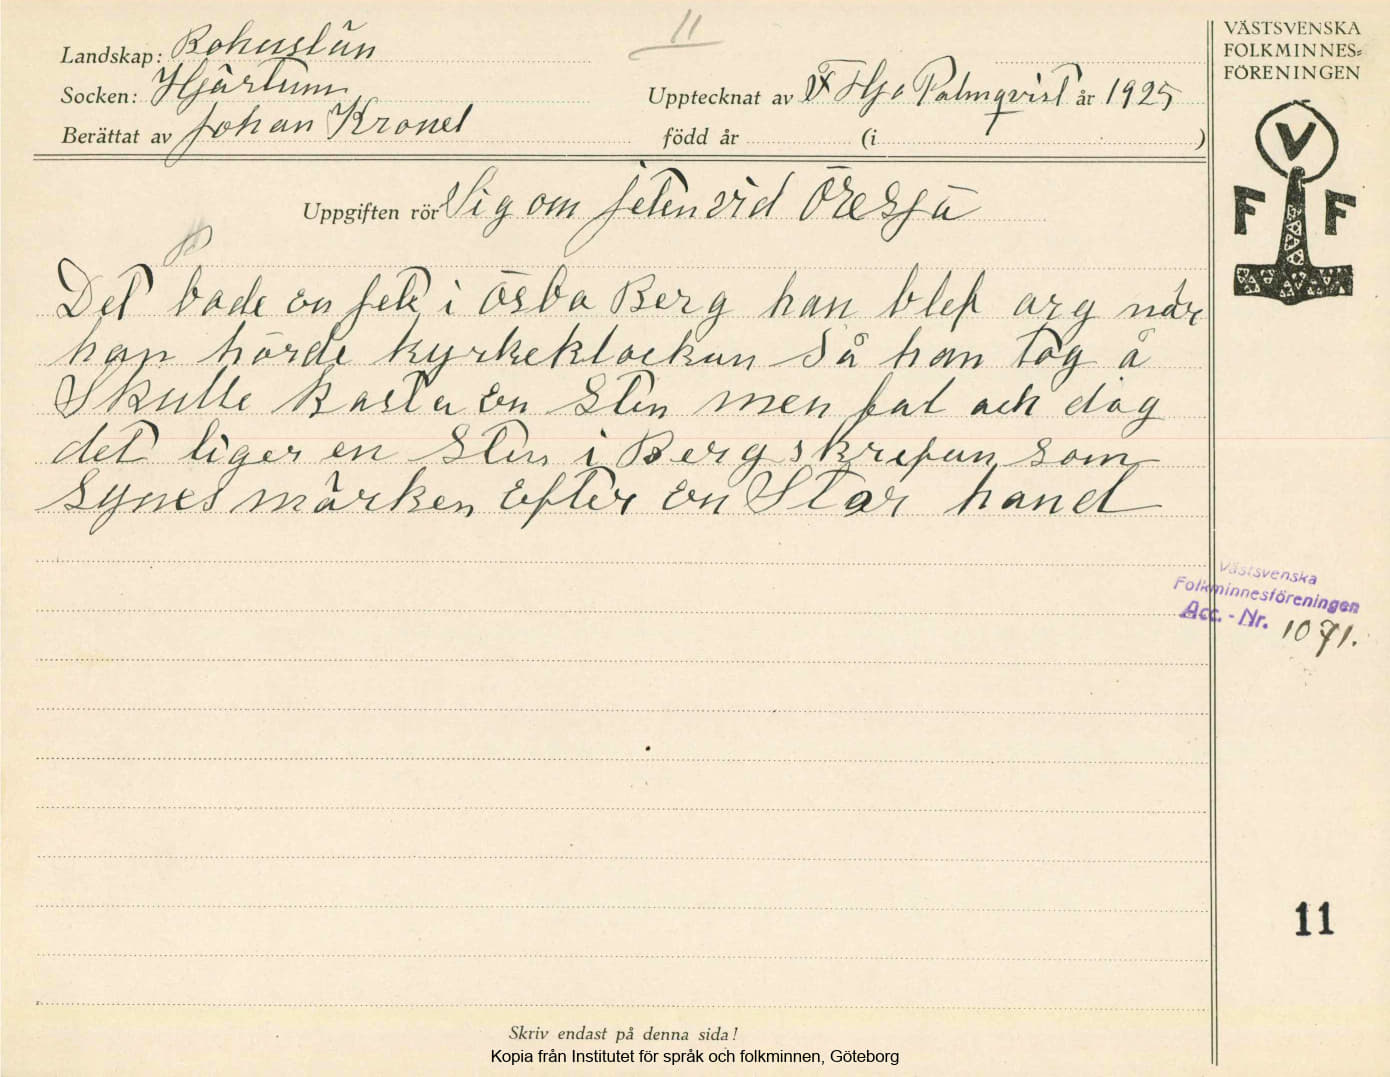 11
Landskap: Bohuslän
Socken: Hjärtum
Upptecknat av F Hj. Palmqvist år 1925
Berättat av Johan Kronel
född år (i )
Uppgiften rör Sig om jeten vid Öresjö
Det bode en jete i Ösbo Berg han blef arg när
han hörde kyrkeklockan så han tog å
Skulle kasta en Sten men fal ach dog
det liger en Sten i Bergskrefan som
synes märken efter en Stor hand
VÄSTSVENSKA
FOLKMINNES-
FÖRENINGEN
V
F F
Västsvenska
Folkminnesföreningen
Acc. - Nr. 1071.
11
Skriv endast på denna sida!
Kopia från Institutet för språk och folkminnen, Göteborg